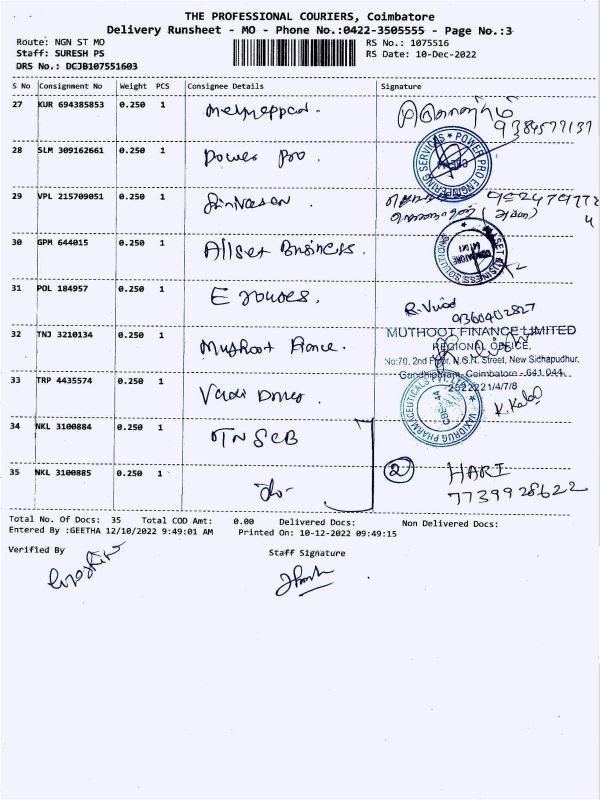 THE PROFESSIONAL COURIERS, Coimbatore
Delivery Runsheet - MO - Phone No.:0422-3505555 - Page No.:3
Route: NGN ST MO
RS No.: 1075516
Staff: SURESH PS
RS Date: 10-Dec-2022
DRS No.: DCJB107551603
S No Consignment No Weight PCS Consignee Details Signature
27 KUR 694385853 0.250 1
9384577137
28 SLM 309162661 0.250 1 Power Pro.
POWER PRO ENGINEERING SERVICES
29 VPL 215709051 0.250 1 Srinivasan.
30 GPM 644015 0.250 1 Allset Business.
ALLSET BUSINESS SOLUTIONS
COIMBATORE
641 041
31 POL 184957 0.250 1
R. Vinod
9360402827
32 TNJ 3210134 0.250 1 Muthoot Finance.
MUTHOOT FINANCE LIMITED
REGIONAL OFFICE,
No:70, 2nd Floor, N.G.N. Street, New Sidhapudhur,
Gandhipuram, Coimbatore - 641 044.
2522221/4/7/8
33 TRP 4435574 0.250 1
VAXIDRUG PHARMACEUTICALS PVT. LTD.
CBE - 44
34 NKL 3100884 0.250 1 TNSCB
35 NKL 3100885 0.250 1 do-
2 HARI
7739928622
Total No. Of Docs: 35 Total COD Amt: 0.00 Delivered Docs: Non Delivered Docs:
Entered By :GEETHA 12/10/2022 9:49:01 AM Printed On: 10-12-2022 09:49:15
Verified By
Staff Signature